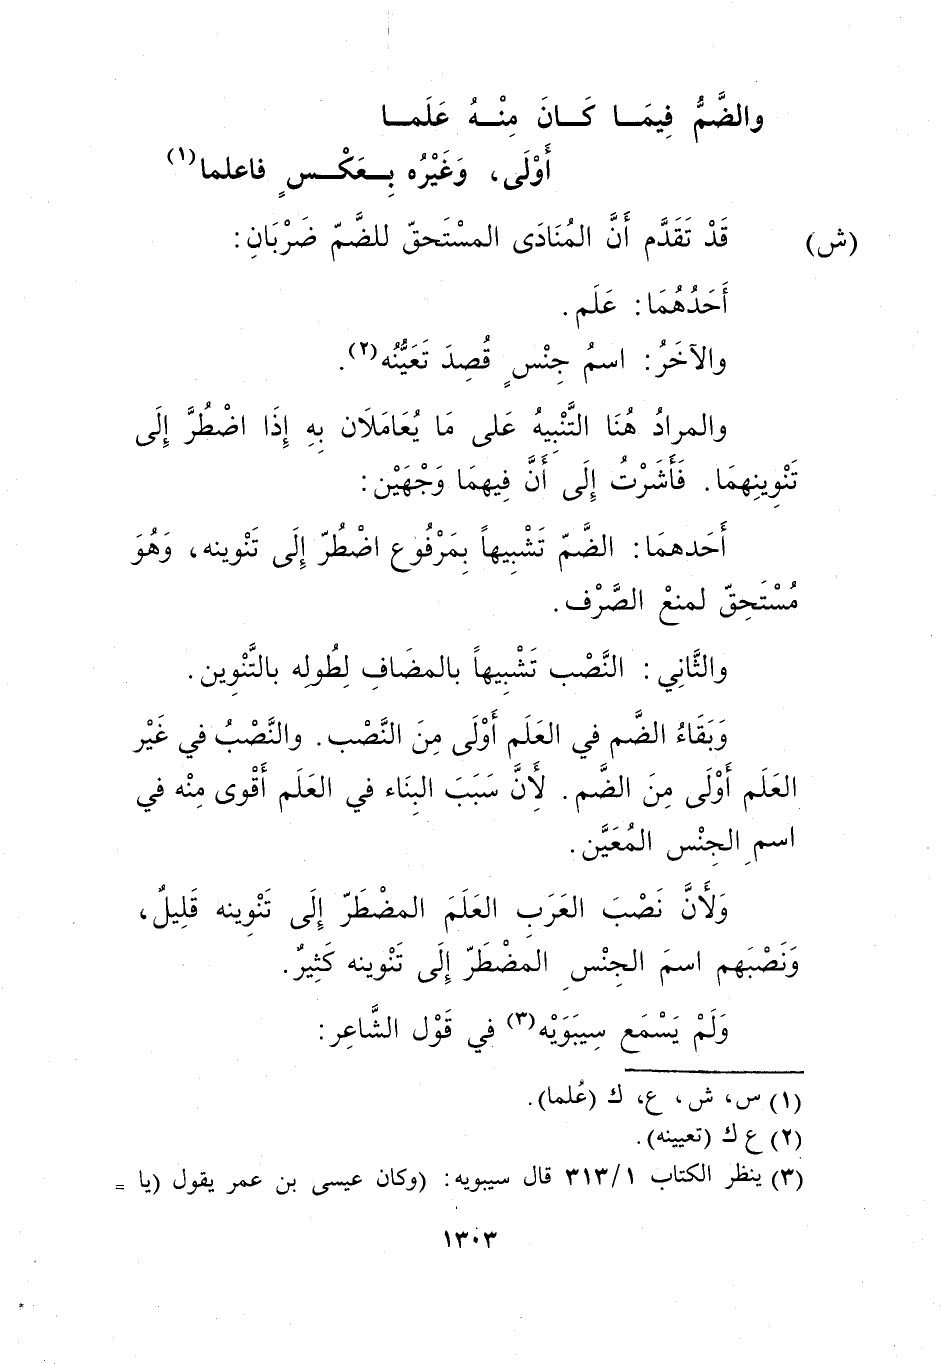 والضَّمُّ فِيمَـــا كَـــانَ مِنْـــهُ عَلَمـــا
أَوْلَى، وَغَيْرُه بِـــعَكْـــسٍ فاعلما(١)
(ش) قَدْ تَقَدَّم أَنَّ المُنَادَى المسْتَحقّ للضَّمّ ضَرْبَانِ:
أَحَدُهُمَا: عَلَم.
والآخَرُ: اسمُ جِنْسٍ قُصِدَ تَعَيُّنُه(٢).
والمرادُ هُنَا التَّنْبِيهُ عَلى مَا يُعَامَلَان بِهِ إِذَا اضْطُرَّ إِلَى
تَنْوِينِهمَا. فَأَشَرْتُ إِلَى أَنَّ فِيهمَا وَجْهَيْن:
أَحَدهمَا: الضَّمّ تَشْبِيهاً بِمَرْفُوع اضْطُرّ إِلَى تَنْوينه، وَهُوَ
مُسْتَحِقّ لمنعْ الصَّرْف.
والثَّانِي: النَّصْب تَشْبِيهاً بالمضَافِ لِطُولِه بالتَّنْوين.
وَبَقَاءُ الضَّم في العَلَم أَوْلَى مِنَ النَّصْب. والنَّصْبُ في غَيْر
العَلَم أَوْلَى مِنَ الضَّم. لأَنَّ سَبَبَ البِنَاء في العَلَم أَقْوى مِنْه في
اسمِ الجِنْس المُعَيَّن.
وَلأَنَّ نَصْبَ العَرَبِ العَلَمَ المضْطَرّ إِلَى تَنْوينه قَلِيلٌ،
وَنَصْبَهم اسمَ الجِنْسِ المضْطَرّ إِلَى تَنْوينه كَثِيرٌ.
وَلَمْ يَسْمَع سِيبَوَيْه(٣) في قَوْل الشَّاعِر:
(١) س، ش، ع، ك (عُلما).
(٢) ع ك (تعيينه).
(٣) ينظر الكتاب ٣١٣/١ قال سيبويه: (وكان عيسى بن عمر يقول (يا =
١٣٠٣